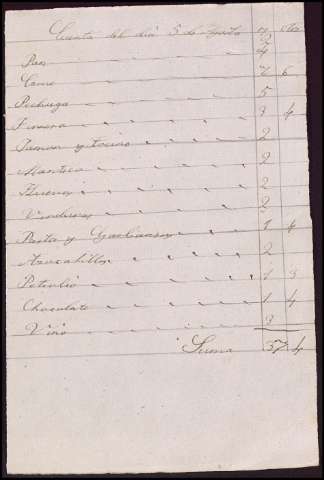 Cuenta del dia 5 de Agosto
Pan 4
Carne 7 6
Pechuga 5
Ternera 3 4
Jamon y tocino 2
Manteca 2
Huevos 2
Verduras 2
Pasta y Garbanzos 1 4
Azucarillos 2
Petrolio 1 3
Chocolate 1 4
Vino 3
Suma 37 4